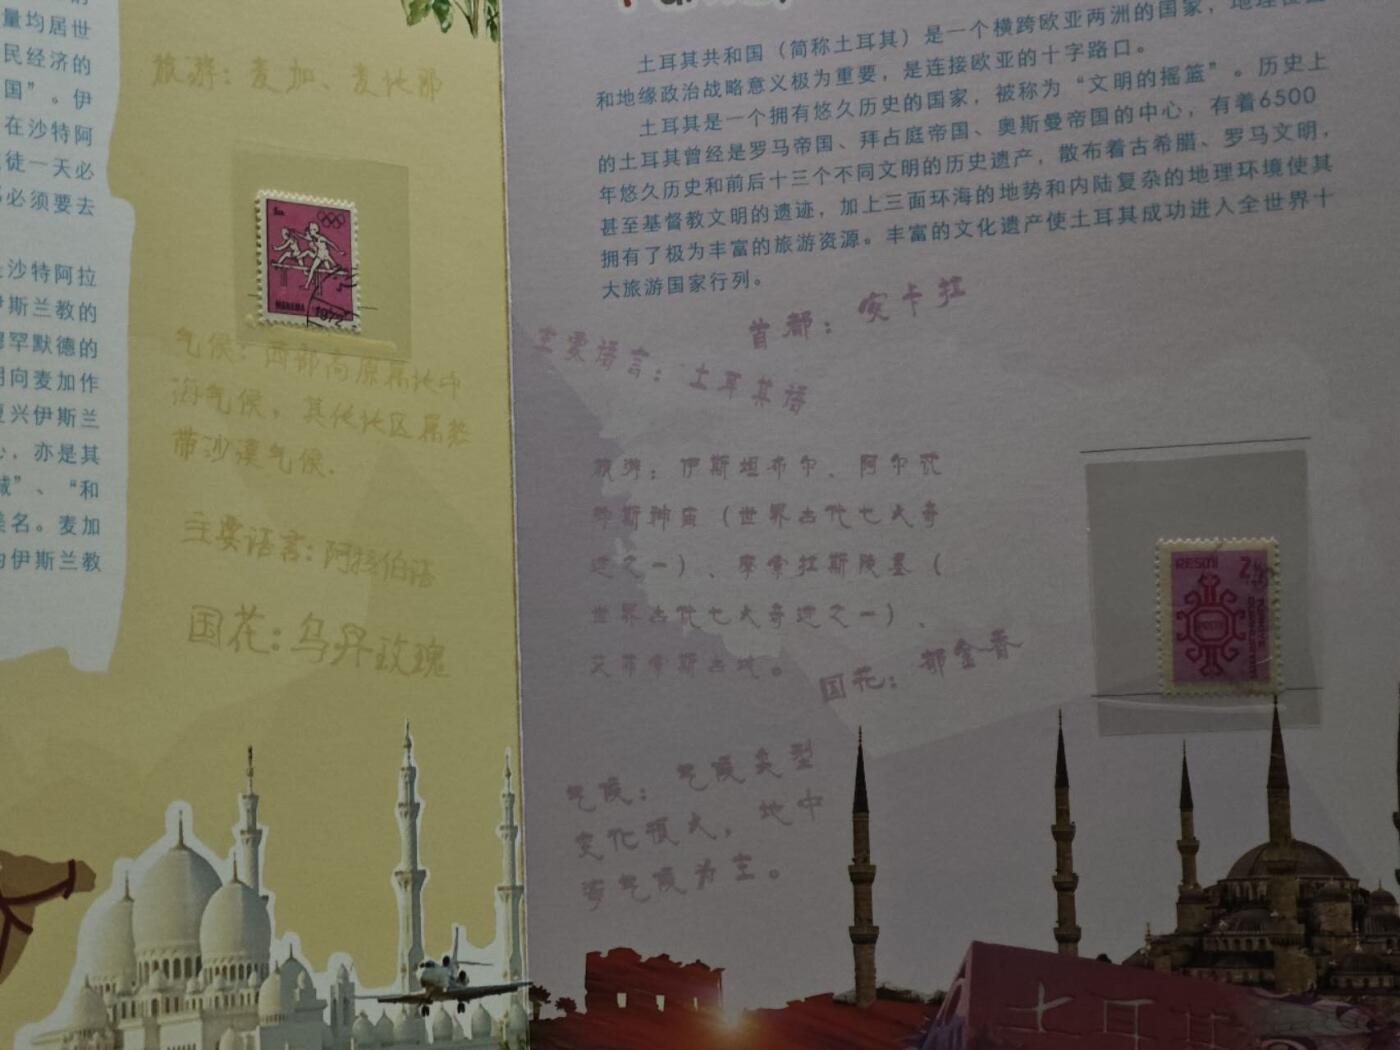 量均居世
民经济的
国”。伊
在沙特阿
徒一天必
必须要去
沙特阿拉
伊斯兰教的
穆罕默德的
向麦加作
复兴伊斯兰
心，亦是其
城”、“和
美名。麦加
伊斯兰教
旅游：麦加、麦地那
1972
气候：西部高原属地中
海气候，其他地区属热
带沙漠气候.
主要语言：阿拉伯语
国花：乌丹玫瑰
土耳其共和国（简称土耳其）是一个横跨欧亚两洲的国家，地理位置
和地缘政治战略意义极为重要，是连接欧亚的十字路口。
土耳其是一个拥有悠久历史的国家，被称为“文明的摇篮”。历史上
的土耳其曾经是罗马帝国、拜占庭帝国、奥斯曼帝国的中心，有着6500
年悠久历史和前后十三个不同文明的历史遗产，散布着古希腊、罗马文明，
甚至基督教文明的遗迹，加上三面环海的地势和内陆复杂的地理环境使其
拥有了极为丰富的旅游资源。丰富的文化遗产使土耳其成功进入全世界十
大旅游国家行列。
首都：安卡拉
主要语言：土耳其语
旅游：伊斯坦布尔、阿尔忒
弥斯神庙（世界古代七大奇
迹之一）、摩索拉斯陵墓（
世界古代七大奇迹之一）、
艾菲索斯古城。
国花：郁金香
RESMI
气候：气候类型
变化很大，地中
海气候为主。
土耳其